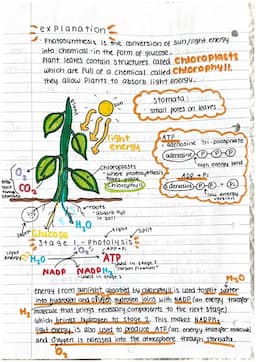 explanation
· Photosynthesis is the conversion of sun/light energy
into chemical - in the form of glucose.
Plant leaves contain structures called Chloroplasts
which are full of a chemical called chlorophyll.
they allow plants to absorb light energy.
Stomata:
small pores on leaves
sun
light
energy
ATP
adenosine Tri-phosphate
adenosine P P P
high energy bond
ADP + Pi
adenosine P P + Pi
low energy
version
chloroplasts
where photosynthesis
takes place
Chlorophyll
O₂
CO₂
roots
absorb H₂O
in soil
H₂O
Glucose
light split
Stage 1 - Photolysis
light
energy
H₂O
O₂
ATP
used in stage 2
NADP NADPH₂
used in stage 2
H₂O
energy from sunlight absorbed by chlorophyll is used to split water
into hydrogen and oxygen. hydrogen joins with NADP (an energy transfer
H₂ molecule that brings necessary components to the next stage)
which brings hydrogen to stage 2. This makes NADPH₂
light energy is also used to produce ATP (an energy transfer molecule)
and oxygen is released into the atmosphere through stomata.
O₂